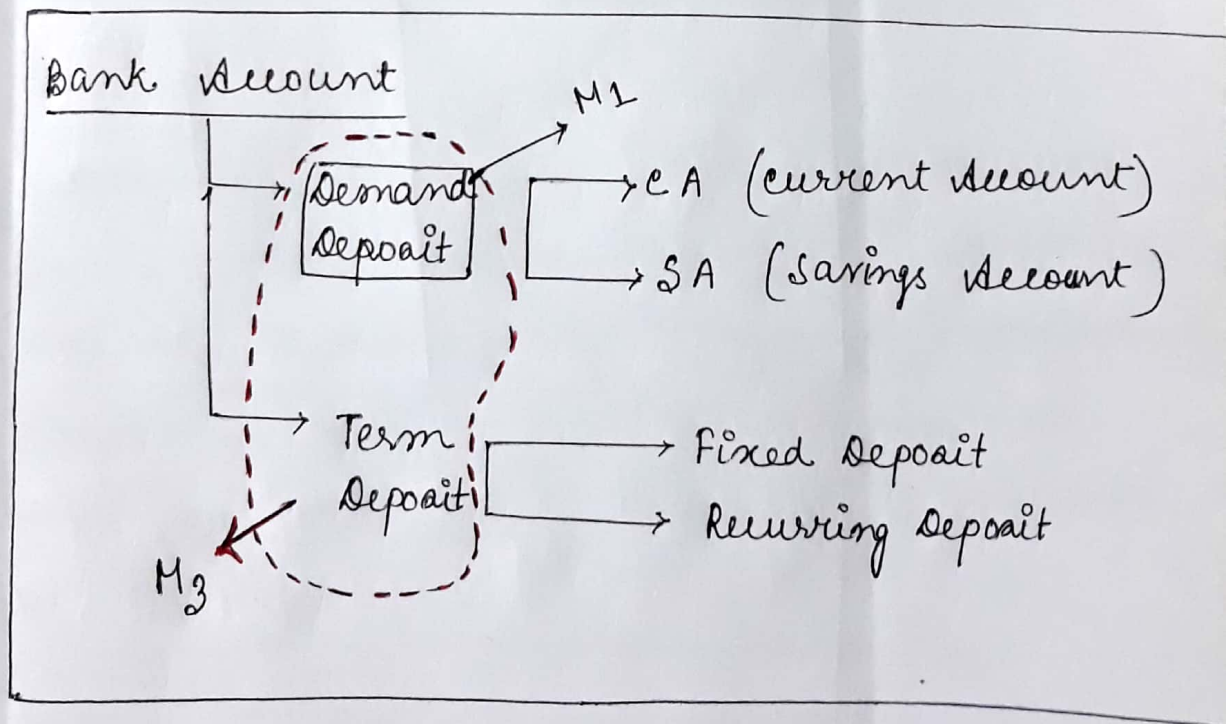 Bank Account
M1
Demand
Deposit
CA (Current Account)
SA (Savings Account)
Term
Deposit
Fixed Deposit
Recurring Deposit
M3